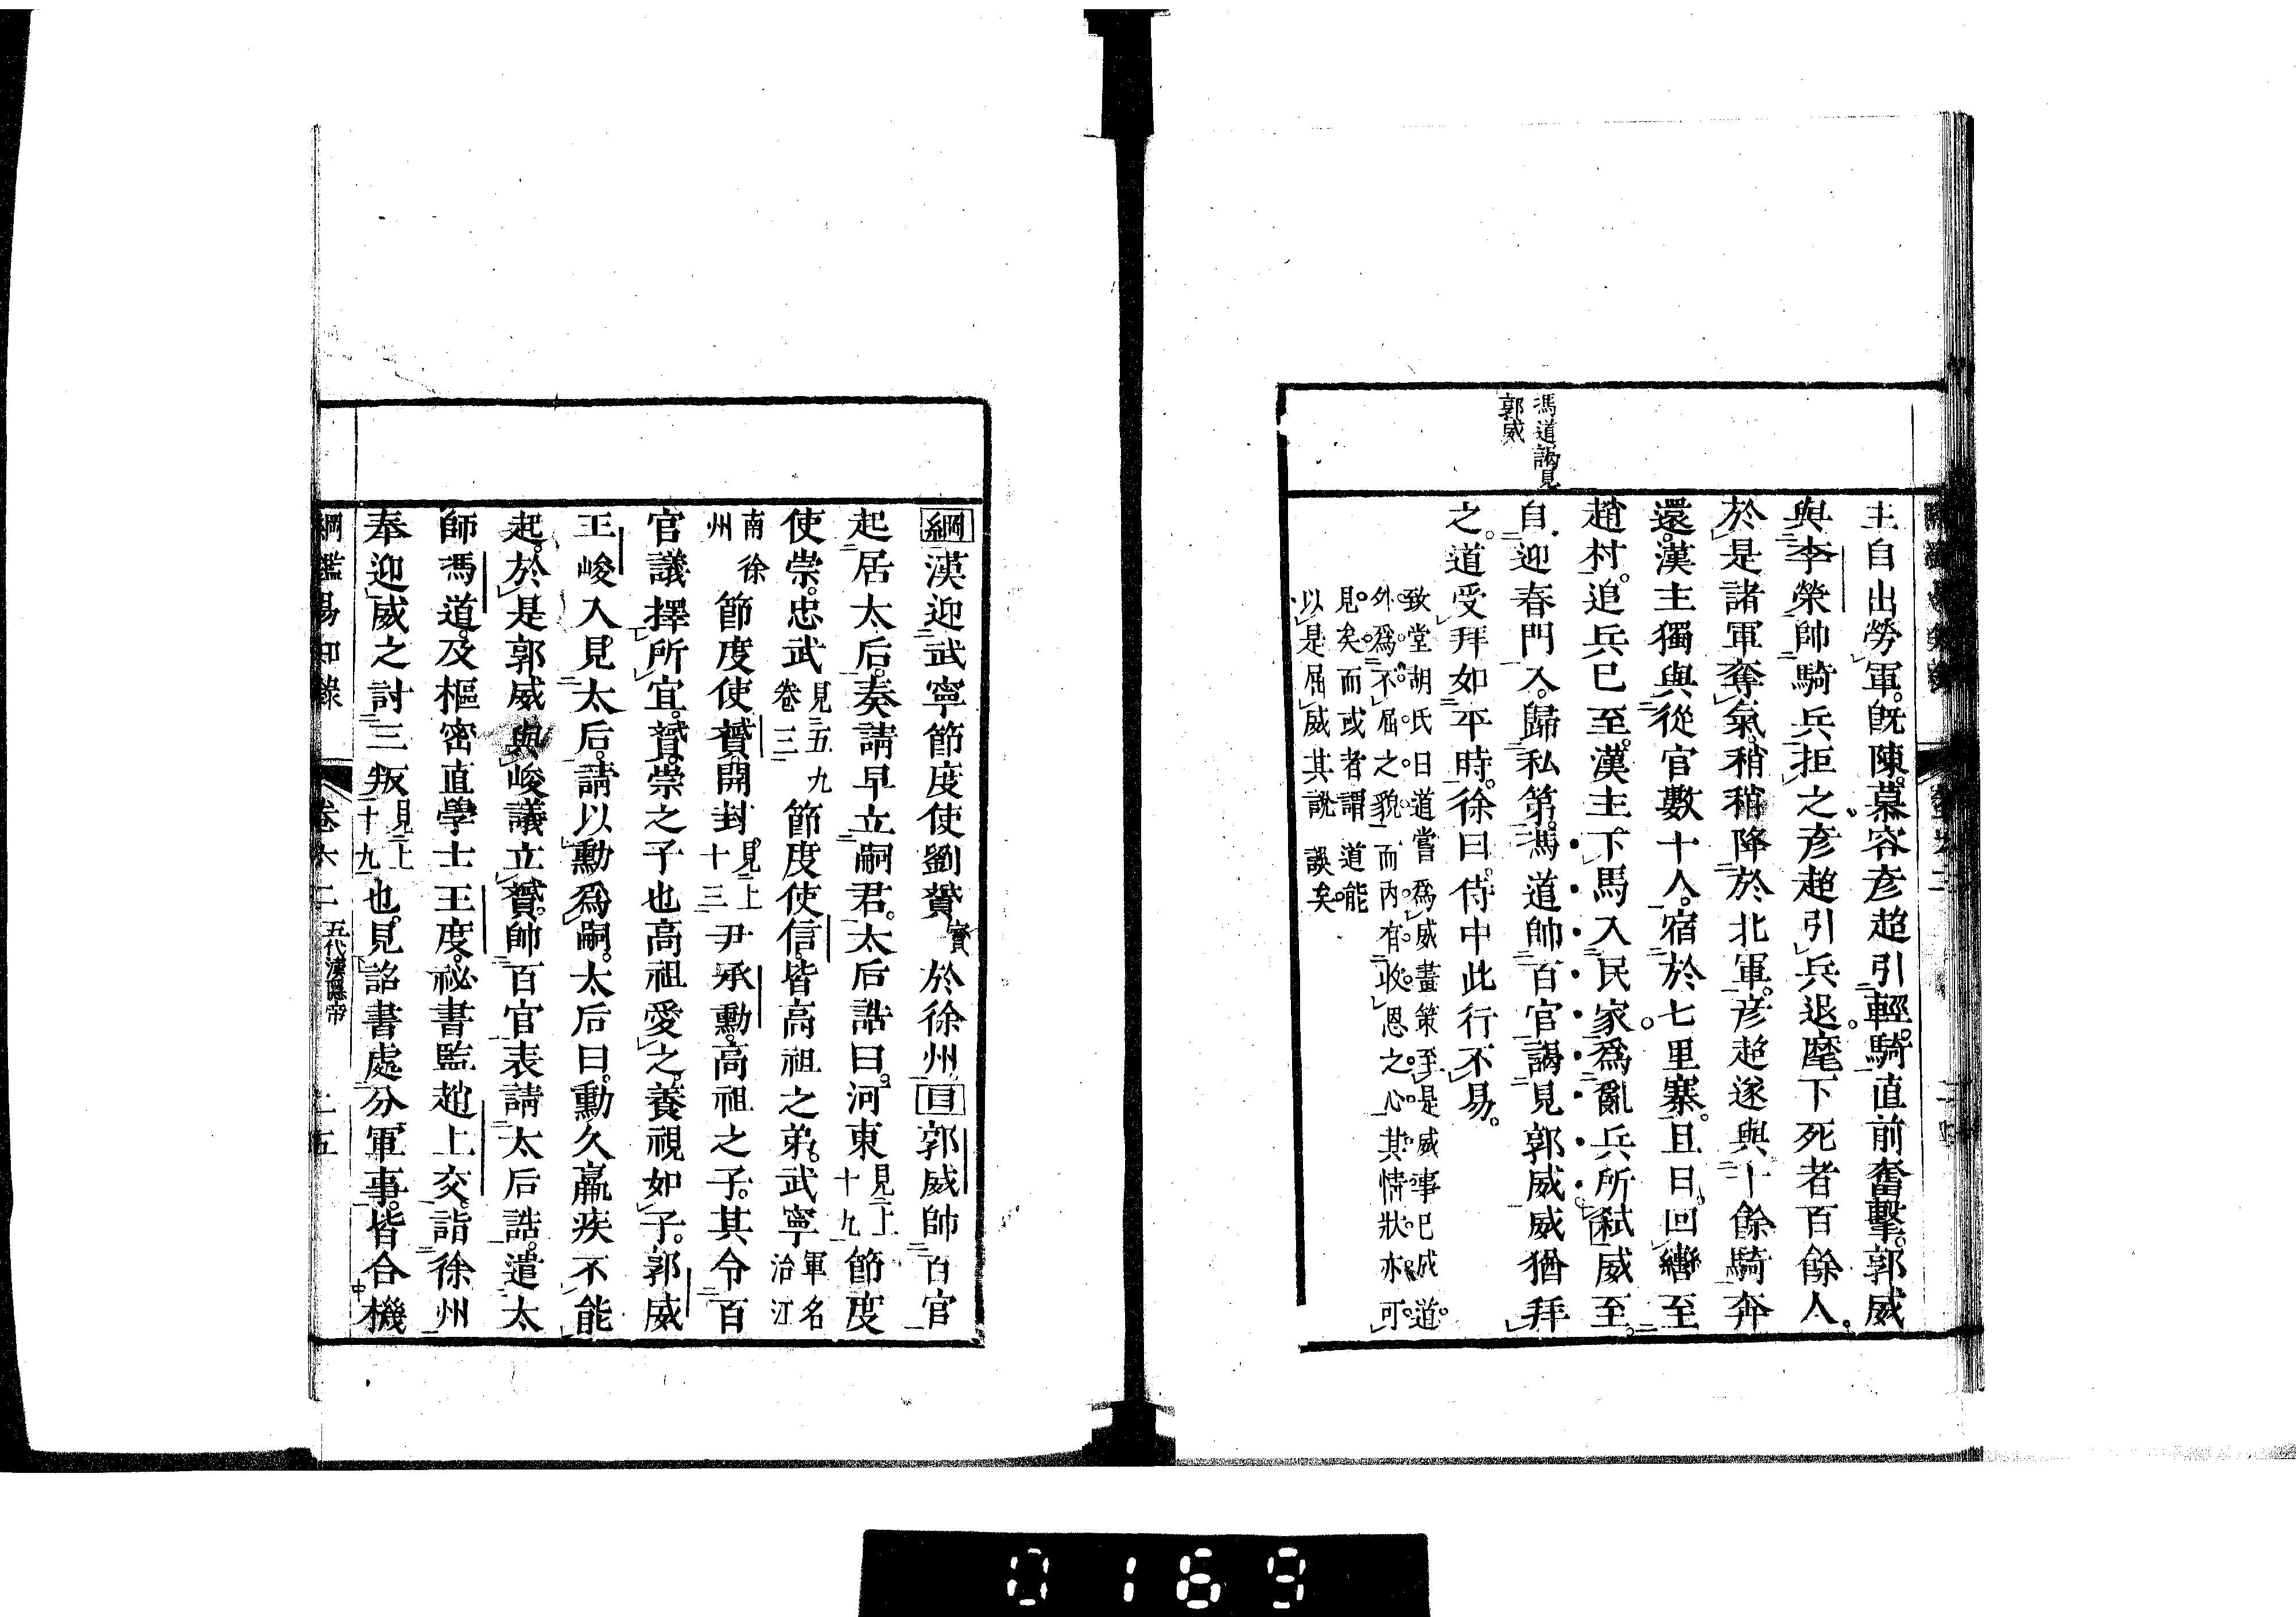 馮道謁見
郭威
主自出勞軍。既陳。慕容彥超引輕騎直前奮擊。郭威
與李榮帥騎兵拒之。彥超引兵退。麾下死者百餘人。
於是諸軍奪氣。稍稍降於北軍。彥超遂與十餘騎奔
還。漢主獨與從官數十人。宿於七里寨。旦日。回轡至
趙村。追兵已至。漢主下馬入民家。爲亂兵所弒。威至。
自迎春門入。歸私第。馮道帥百官謁見郭威。威猶拜
之。道受拜如平時。徐曰。侍中此行不易。
致堂胡氏曰道嘗爲威畫策至是威事已成道
外爲不屈之貌而內有收恩之心其情狀亦可
見矣而或者謂道能
以是屈威其說誤矣
綱漢迎武寧節度使劉贇賓於徐州目郭威帥百官
起居太后。奏請早立嗣君。太后誥曰。河東見上十九節度
使崇。忠武見五九卷三節度使信。皆高祖之弟。武寧軍名治江
南徐州節度使贇。開封見上十三尹承勳。高祖之子。其令百
官議擇所宜。贇。崇之子也。高祖愛之。養視如子。郭威
王峻入見太后。請以勳爲嗣。太后曰。勳久羸疾不能
起。於是郭威與峻議立贇。帥百官表請。太后誥。遣太
師馮道。及樞密直學士王度。祕書監趙上交。詣徐州
奉迎。威之討三叛見上十九也。見詔書處分軍事。皆合機
綱鑑易知錄 卷六二 五代漢隱帝 二五
0169